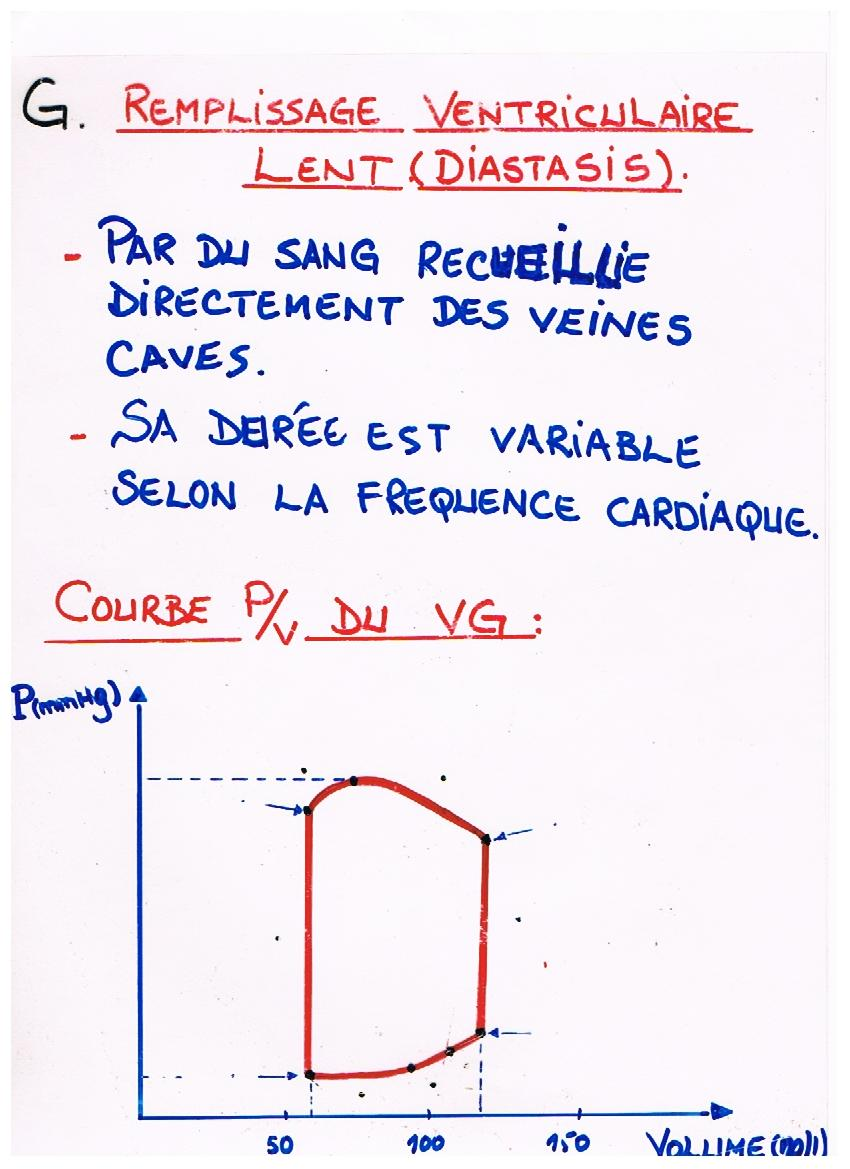 G. REMPLISSAGE VENTRICULAIRE
LENT (DIASTASIS).
- PAR DU SANG RECUEILLIE
DIRECTEMENT DES VEINES
CAVES.
- SA DURÉE EST VARIABLE
SELON LA FREQUENCE CARDIAQUE.
COURBE P/V DU VG :
P(mmHg)
50 100 150 VOLUME (ml)